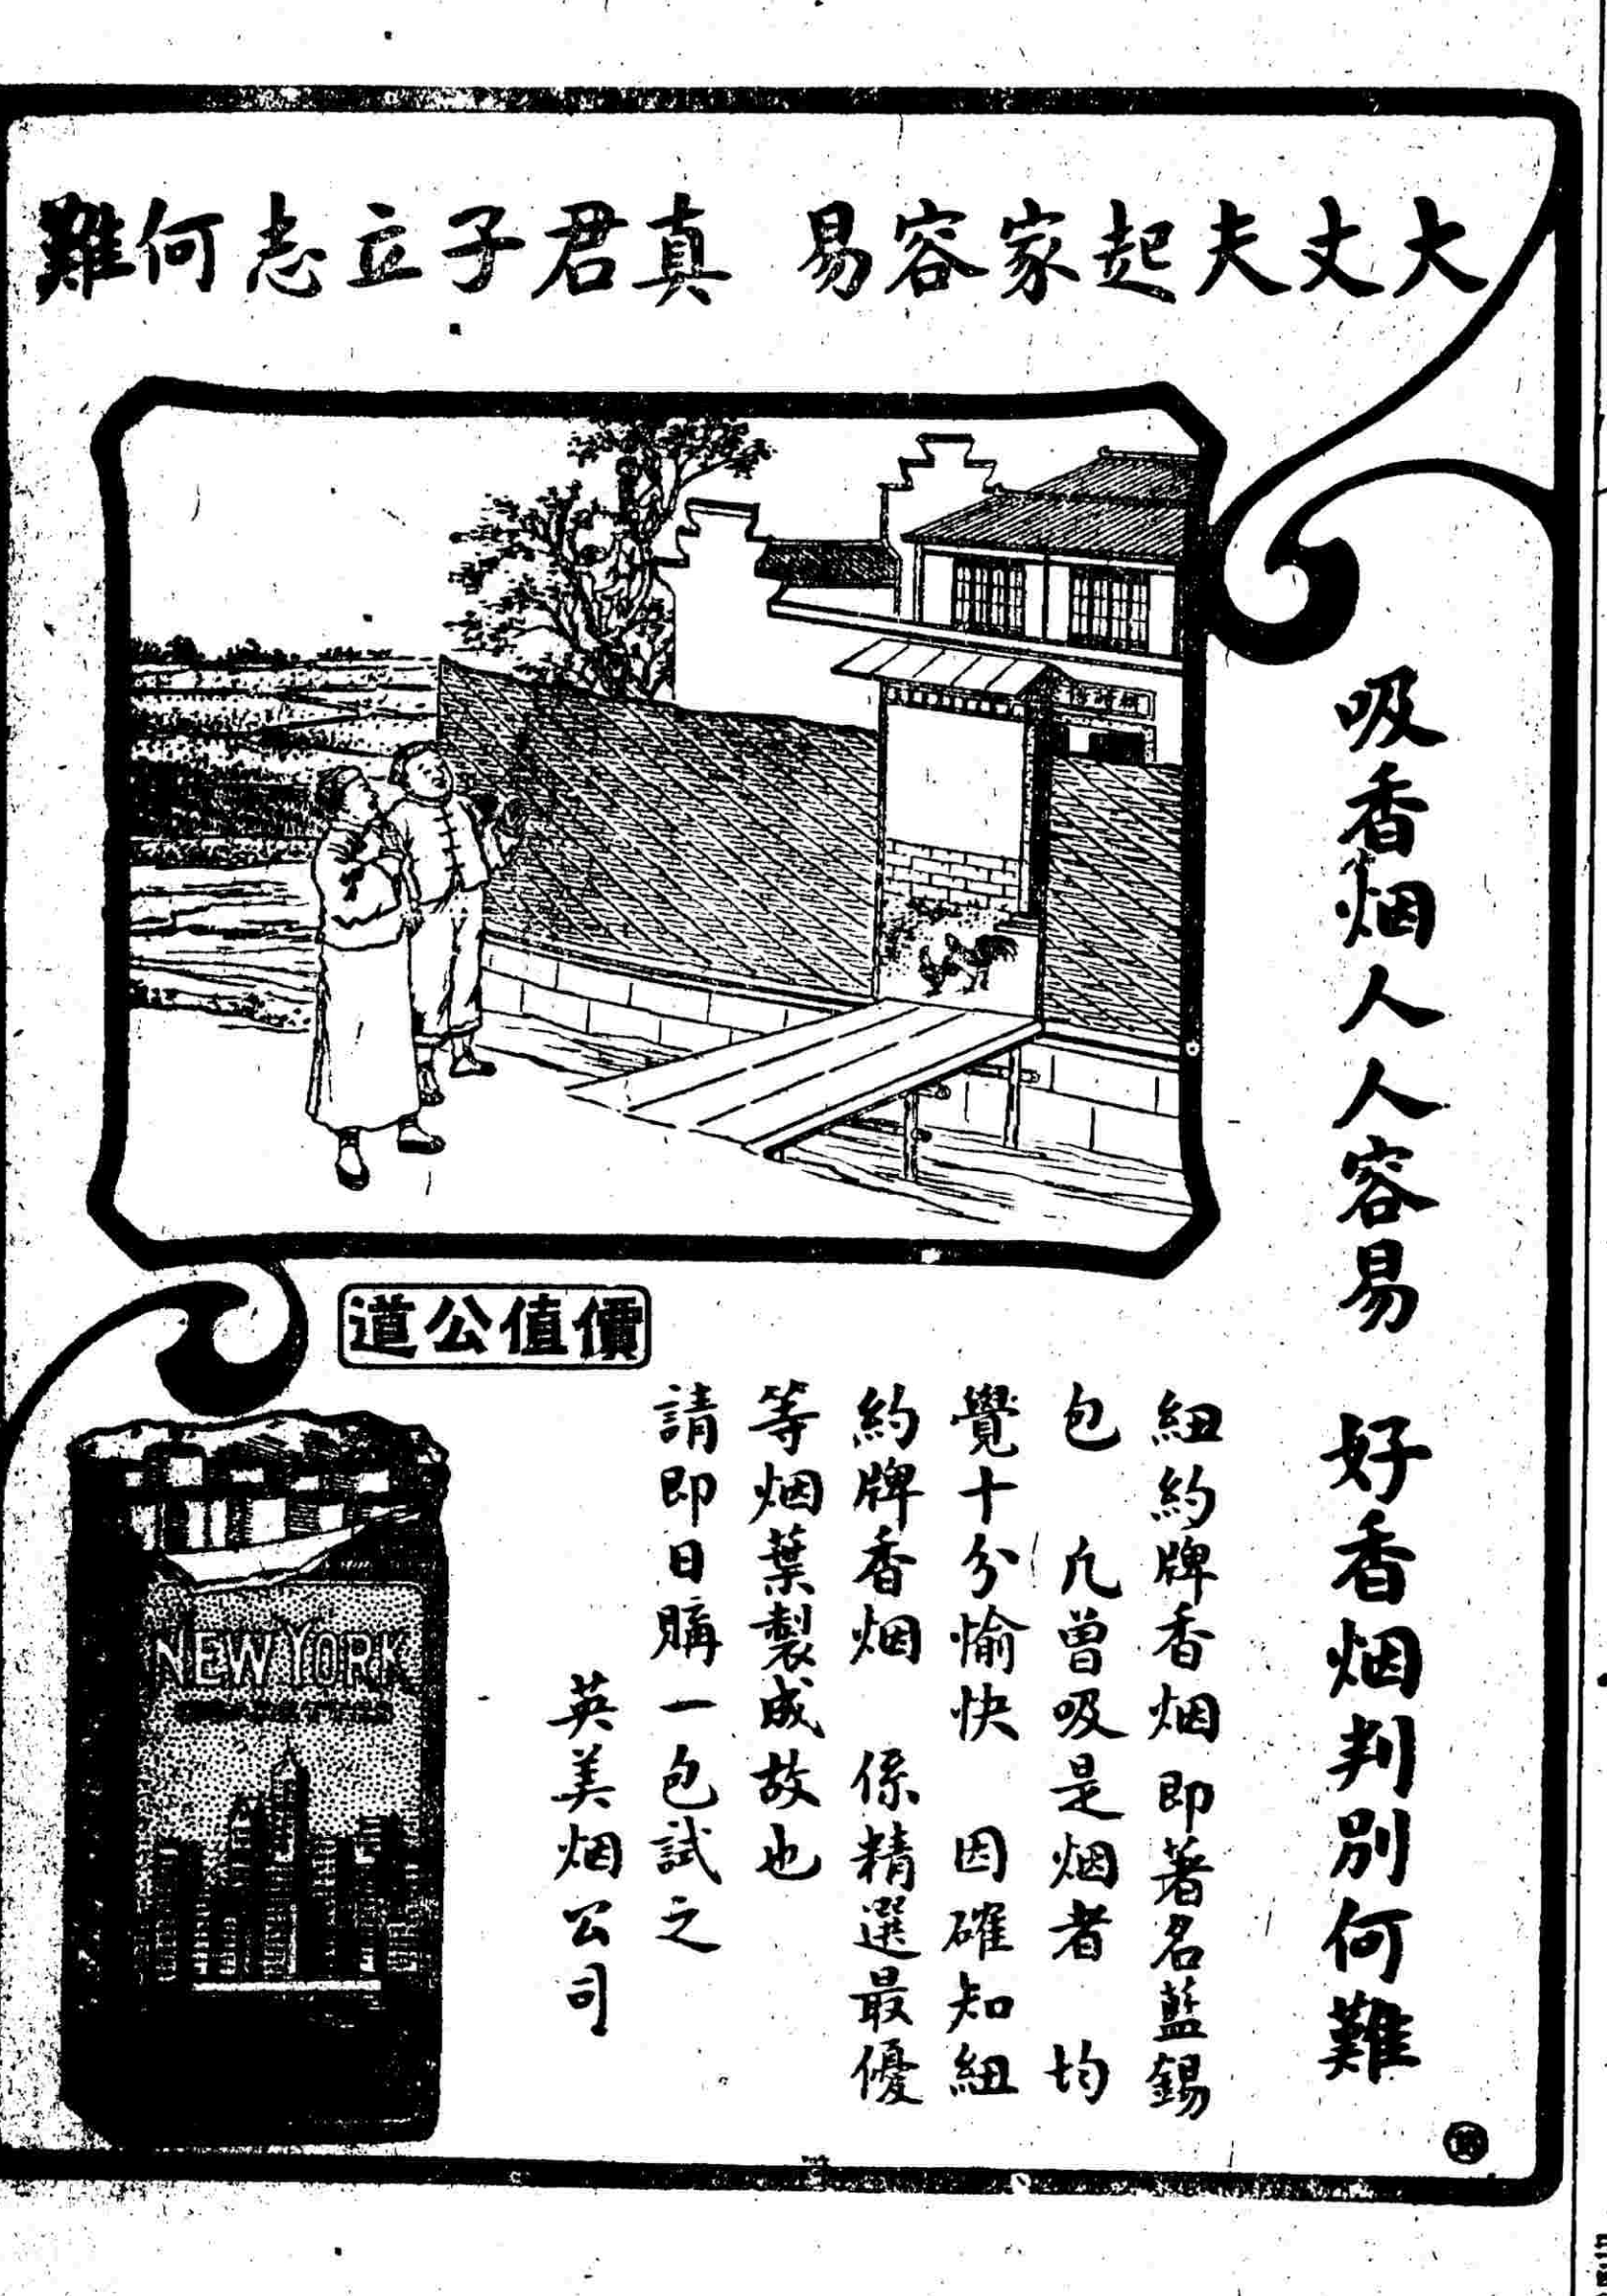 大丈夫起家容易　真君子立志何難
吸香烟人人容易　好香烟判別何難
價值公道
紐約牌香烟即著名藍錫
包　凡曾吸是烟者　均
覺十分愉快　因確知紐
約牌香烟　係精選最優
等烟葉製成故也
請即日購一包試之
英美烟公司
NEW YORK